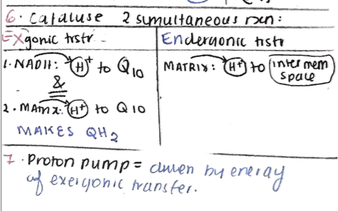 6. Catalyse 2 simultaneous rxn:
Exgonic tistr
Endergonic tistr
1. NADH: H+ to Q10
&
2. Matrix: H+ to Q10
MAKES QH2
MATRIX: H+ to inter mem space
7. Proton pump = driven by energy
of exergonic transfer.